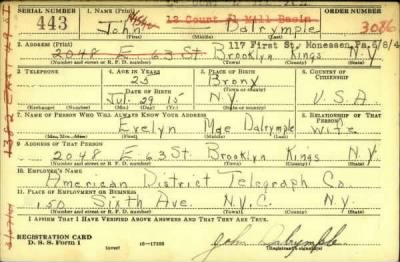 SERIAL NUMBER 1. NAME (Print) ORDER NUMBER
443 John Dalrymple 3086
12 Count Mill Basin
(First) (Middle) (Last)
2. ADDRESS (Print) 117 First St. Monessen, Pa. 6/8/4
2048 E 63 St Brooklyn Kings N.Y
(Number and street or R. F. D. number) (Town) (County) (State)
3. TELEPHONE 4. AGE IN YEARS 5. PLACE OF BIRTH 6. COUNTRY OF CITIZENSHIP
25 Bronx
DATE OF BIRTH
Jul. 29 15 N.Y U.S.A.
(Exchange) (Number) (Mo.) (Day) (Yr.) (State or country)
7. NAME OF PERSON WHO WILL ALWAYS KNOW YOUR ADDRESS 8. RELATIONSHIP OF THAT PERSON
Evelyn Mae Dalrymple wife
(Mr., Mrs., Miss) (First) (Middle) (Last)
9. ADDRESS OF THAT PERSON
2048 E 63 St Brooklyn Kings N.Y.
(Number and street or R. F. D. number) (Town) (County) (State)
10. EMPLOYER'S NAME
American District Telegraph Co.
11. PLACE OF EMPLOYMENT OR BUSINESS
150 Sixth Ave. N.Y.C. N.Y.
(Number and street or R. F. D. number) (Town) (County) (State)
I AFFIRM THAT I HAVE VERIFIED ABOVE ANSWERS AND THAT THEY ARE TRUE.
REGISTRATION CARD
D. S. S. Form 1 (over) 16—17105 John Dalrymple
(Registrant's signature)
1382 East 49 St